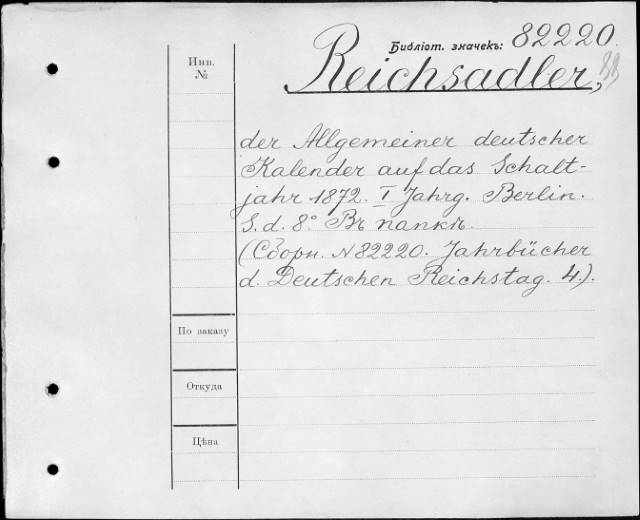 Библіот. значекъ: 82220.
Инв.
№
Reichsadler,
der Allgemeiner deutscher
Kalender auf das Schalt-
jahr 1872. I Jahrg. Berlin.
S. d. 8° Въ папкѣ.
(Сборн. N 82220. Jahrbücher
d. Deutschen Reichstag. 4.).
По заказу
Откуда
Цѣна